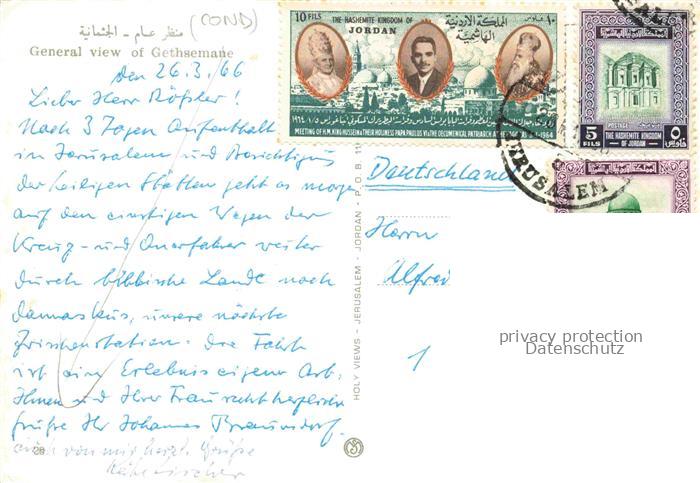 منظر عام - الجثمانية (COND)
General view of Gethsemane
den 26.3.66
Lieber Herr Rößler!
Nach 3 Tagen Aufenthalt
in Jerusalem und Besichtigung
der heiligen Stätten geht es morgen
auf den einstigen Wegen der
Kreuz- und Querfahrer weiter
durch biblische Lande nach
Damaskus, unsere nächste
Zwischenstation. Die Fahrt
ist ein Erlebnis eigener Art.
Ihnen und Ihrer Frau recht herzliche
Grüße Ihr Johannes
auch von mir herzl. Grüße
HOLY VIEWS - JERUSALEM - JORDAN - P.O.B. 11
10 FILS THE HASHEMITE KINGDOM OF JORDAN
المملكة الأردنية الهاشمية
١٠ فلوس
MEETING OF H.M. KING HUSSEIN & THEIR HOLINESS PAPA PAULUS VI & THE OECUMENICAL PATRIARCH
1964
POSTAGE
5 FILS THE HASHEMITE KINGDOM OF JORDAN ٥ فلوس
JERUSALEM
Deutschland
Herrn
Alfred
1
privacy protection
Datenschutz
28